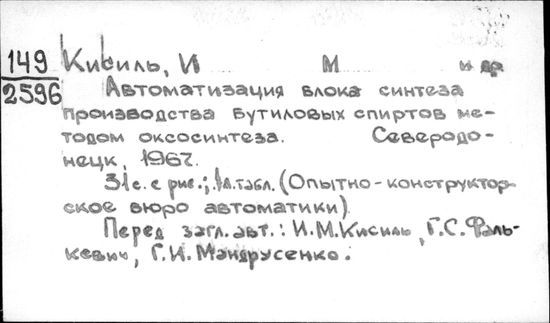 149
2596
Кисиль, И М и др
Автоматизация блока синтеза
производства бутиловых спиртов ме-
тодом оксосинтеза. Северодо-
нецк, 1967.
31с. с рис.; 1л.табл. (Опытно-конструктор-
ское бюро автоматики).
Перед загл. авт.: И.М.Кисиль, Г.С.Фаль-
кевич, Г.И.Мандрусенко.